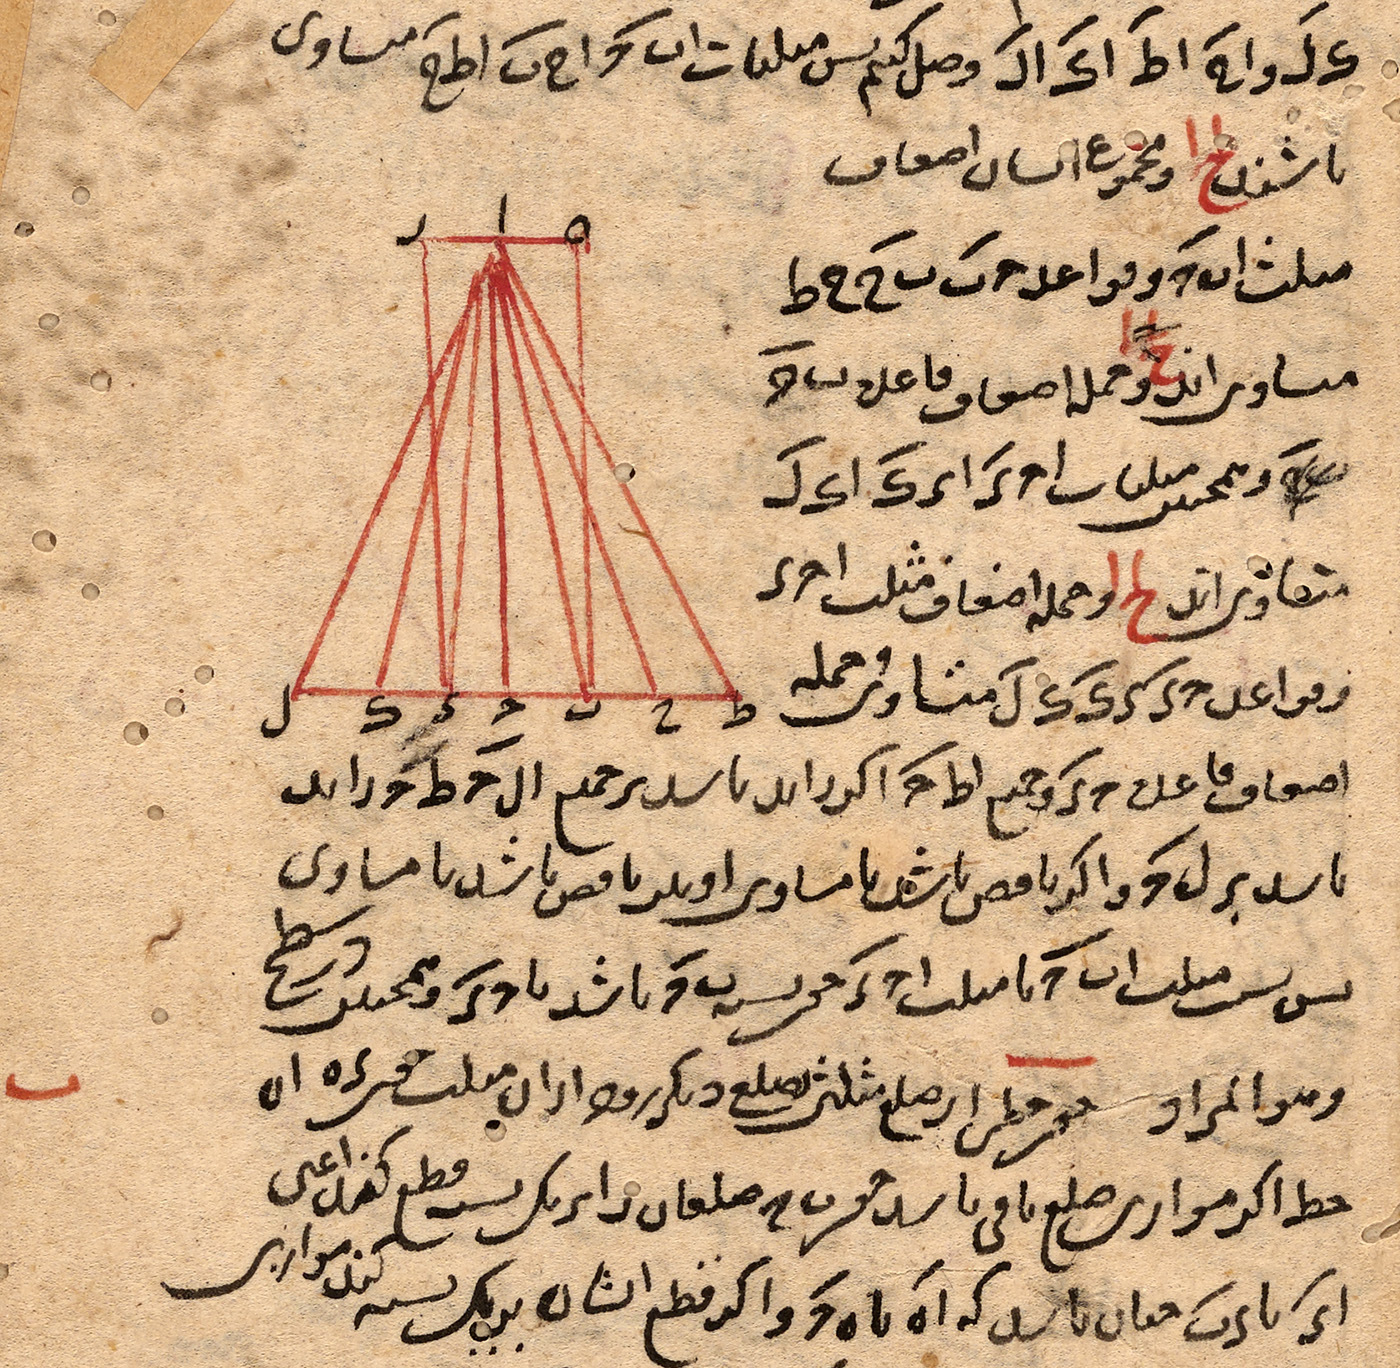 ی ک ل و اح اط ای ال وصل کنیم پس مثلثات اب ج اح ب اط ح مساوی
باشند لح ا و مجموع ایشان اضعاف
مثلث اب ج و قواعد ج ب ب ح ح ط
مساوی‌اند لح ا و جمله اضعاف قاعده ب ج
و همچنین مثلثات ا ج ء ا ء ک ا ک ل
متساوی‌اند لح ا و جمله اضعاف مثلث ا ج ء
و قواعد ج ء ء ک ک ل متساوی و جمله
اضعاف قاعده ج ء و جمیع اط ج اگر زاید باشد بر جمیع ال ج ط ج زاید
باشد بر ل ج و اگر ناقص باشد یا مساوی او نیز ناقص باشد یا مساوی
پس نسبت مثلث اب ج با مثلث ا ج ء چون نسبت ب ج باشد با ج ء و همچنین در سطح
و هو المراد چون خطی از ضلع مثلثی بضلع دیگر رود از آن مثلث چون ء ه از
خط اگر موازی ضلع باقی باشد چون ب ج ضلعان را بر یک نسبت قطع کند اعنی
ا ء با ء ب چنان باشد که ا ه با ه ج و اگر قطع ایشان بر یک نسبت کند موازی
ر ا ه
ل ک ء ج ب ح ط
ب